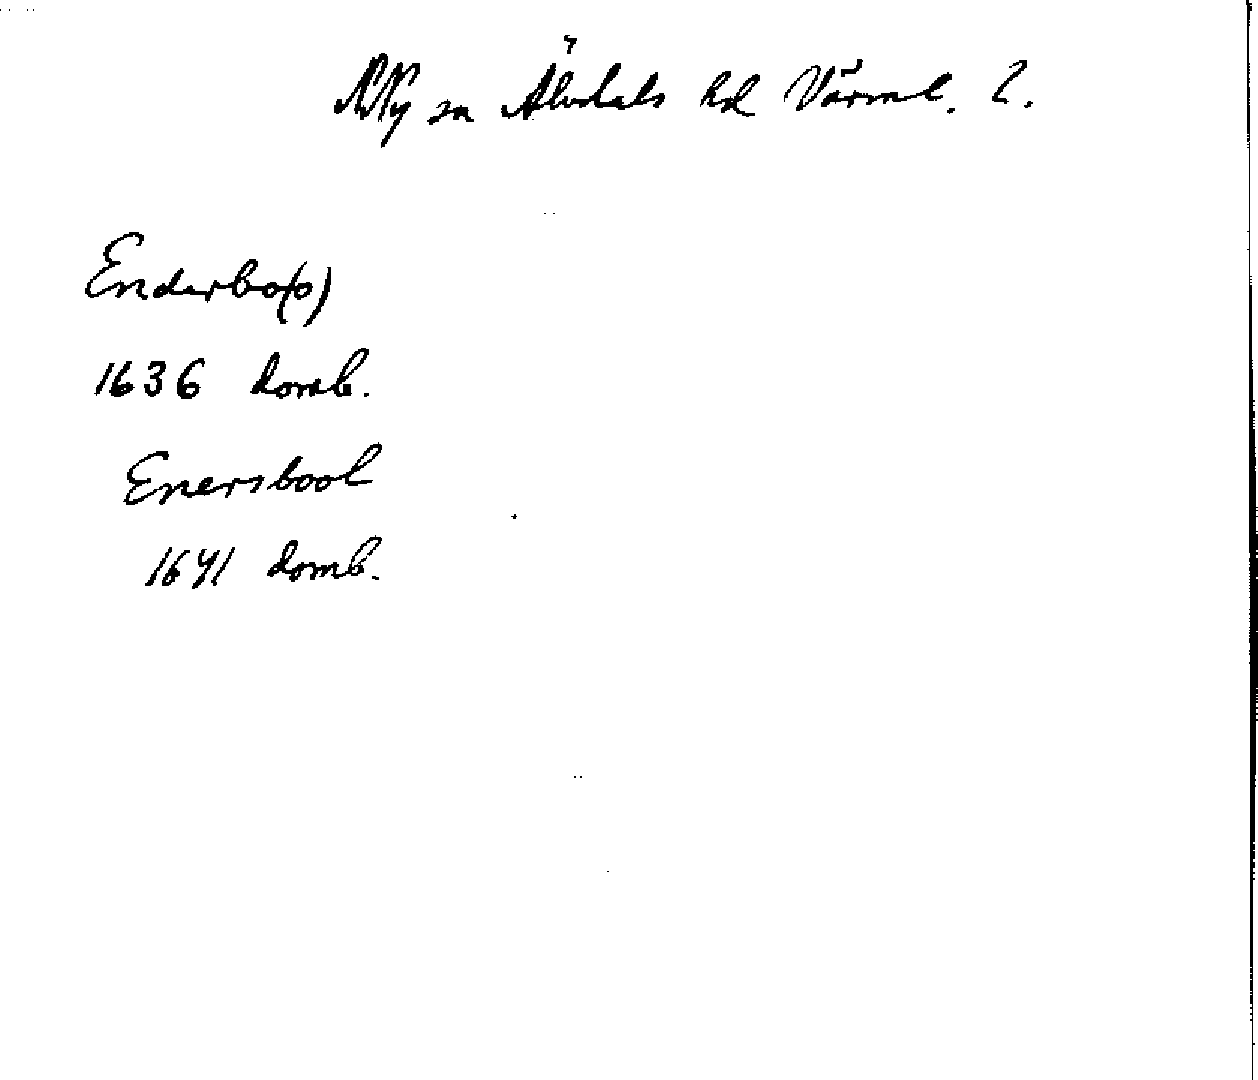 N Ny sn Älvdals hd Värml. l.
Enderbo(o)
1636 domb.
Enersbool
1641 domb.